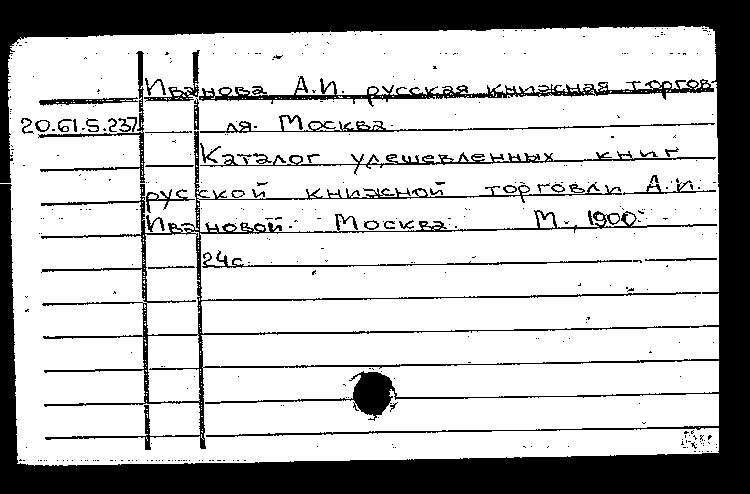 Иванова, А.И., русская книжная торгов
20.61.5.237 ля. Москва.
Каталог удешевленных книг
русской книжной торговли А.И.
Ивановой. Москва. М., 1900.
24с.